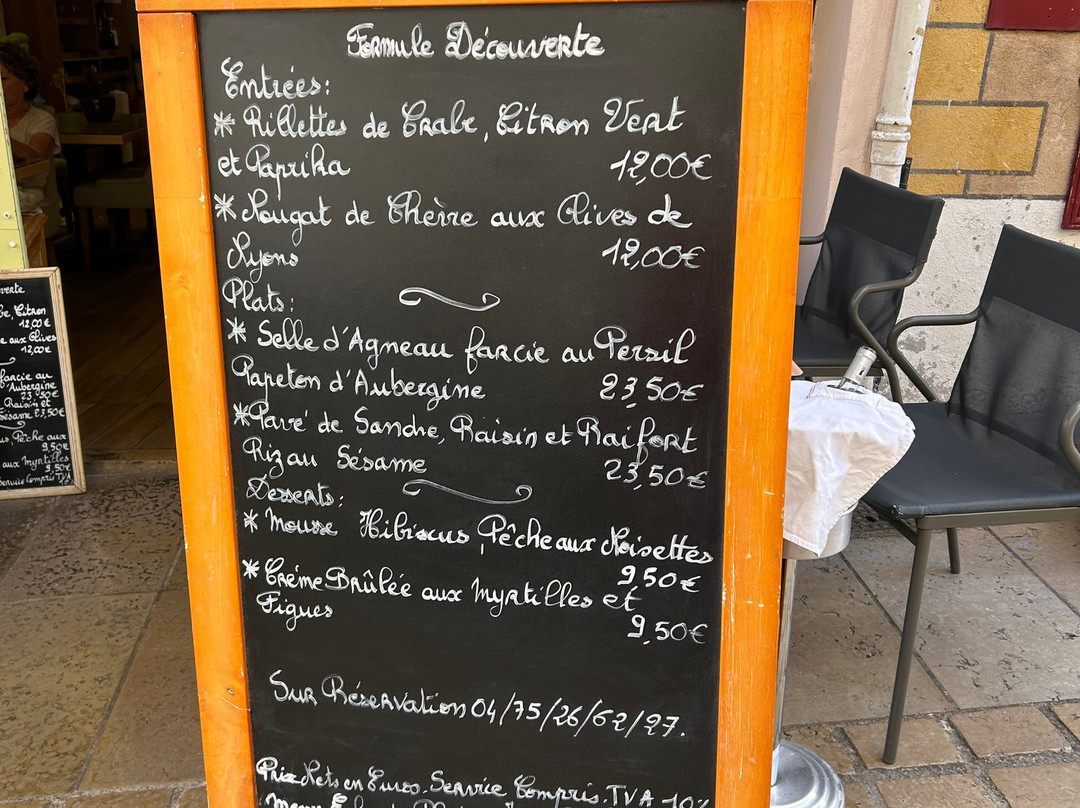 Formule Découverte
Entrées:
* Rillettes de Crabe, Citron Vert
et Paprika 12,00€
* Nougat de Chèvre aux Olives de
Nyons 12,00€
Plats:
* Selle d'Agneau farcie au Persil
Papeton d'Aubergine 23,50€
* Pavé de Sandre, Raisin et Raifort
Riz au Sésame 23,50€
Desserts:
* Mousse Hibiscus, Pêche aux Noisettes
9,50€
* Crème Brûlée aux Myrtilles et
Figues 9,50€
Sur Réservation 04/75/26/62/27.
Prix Nets en Euro. Service Compris. TVA 10%
verte
be, Citron
12,00€
e aux Olives
12,00€
farcie au
d'Aubergine
23,50€
Raisin et
Sésame 23,50€
us, Pêche aux
9,50€
aux Myrtilles
9,50€
Service Compris TVA